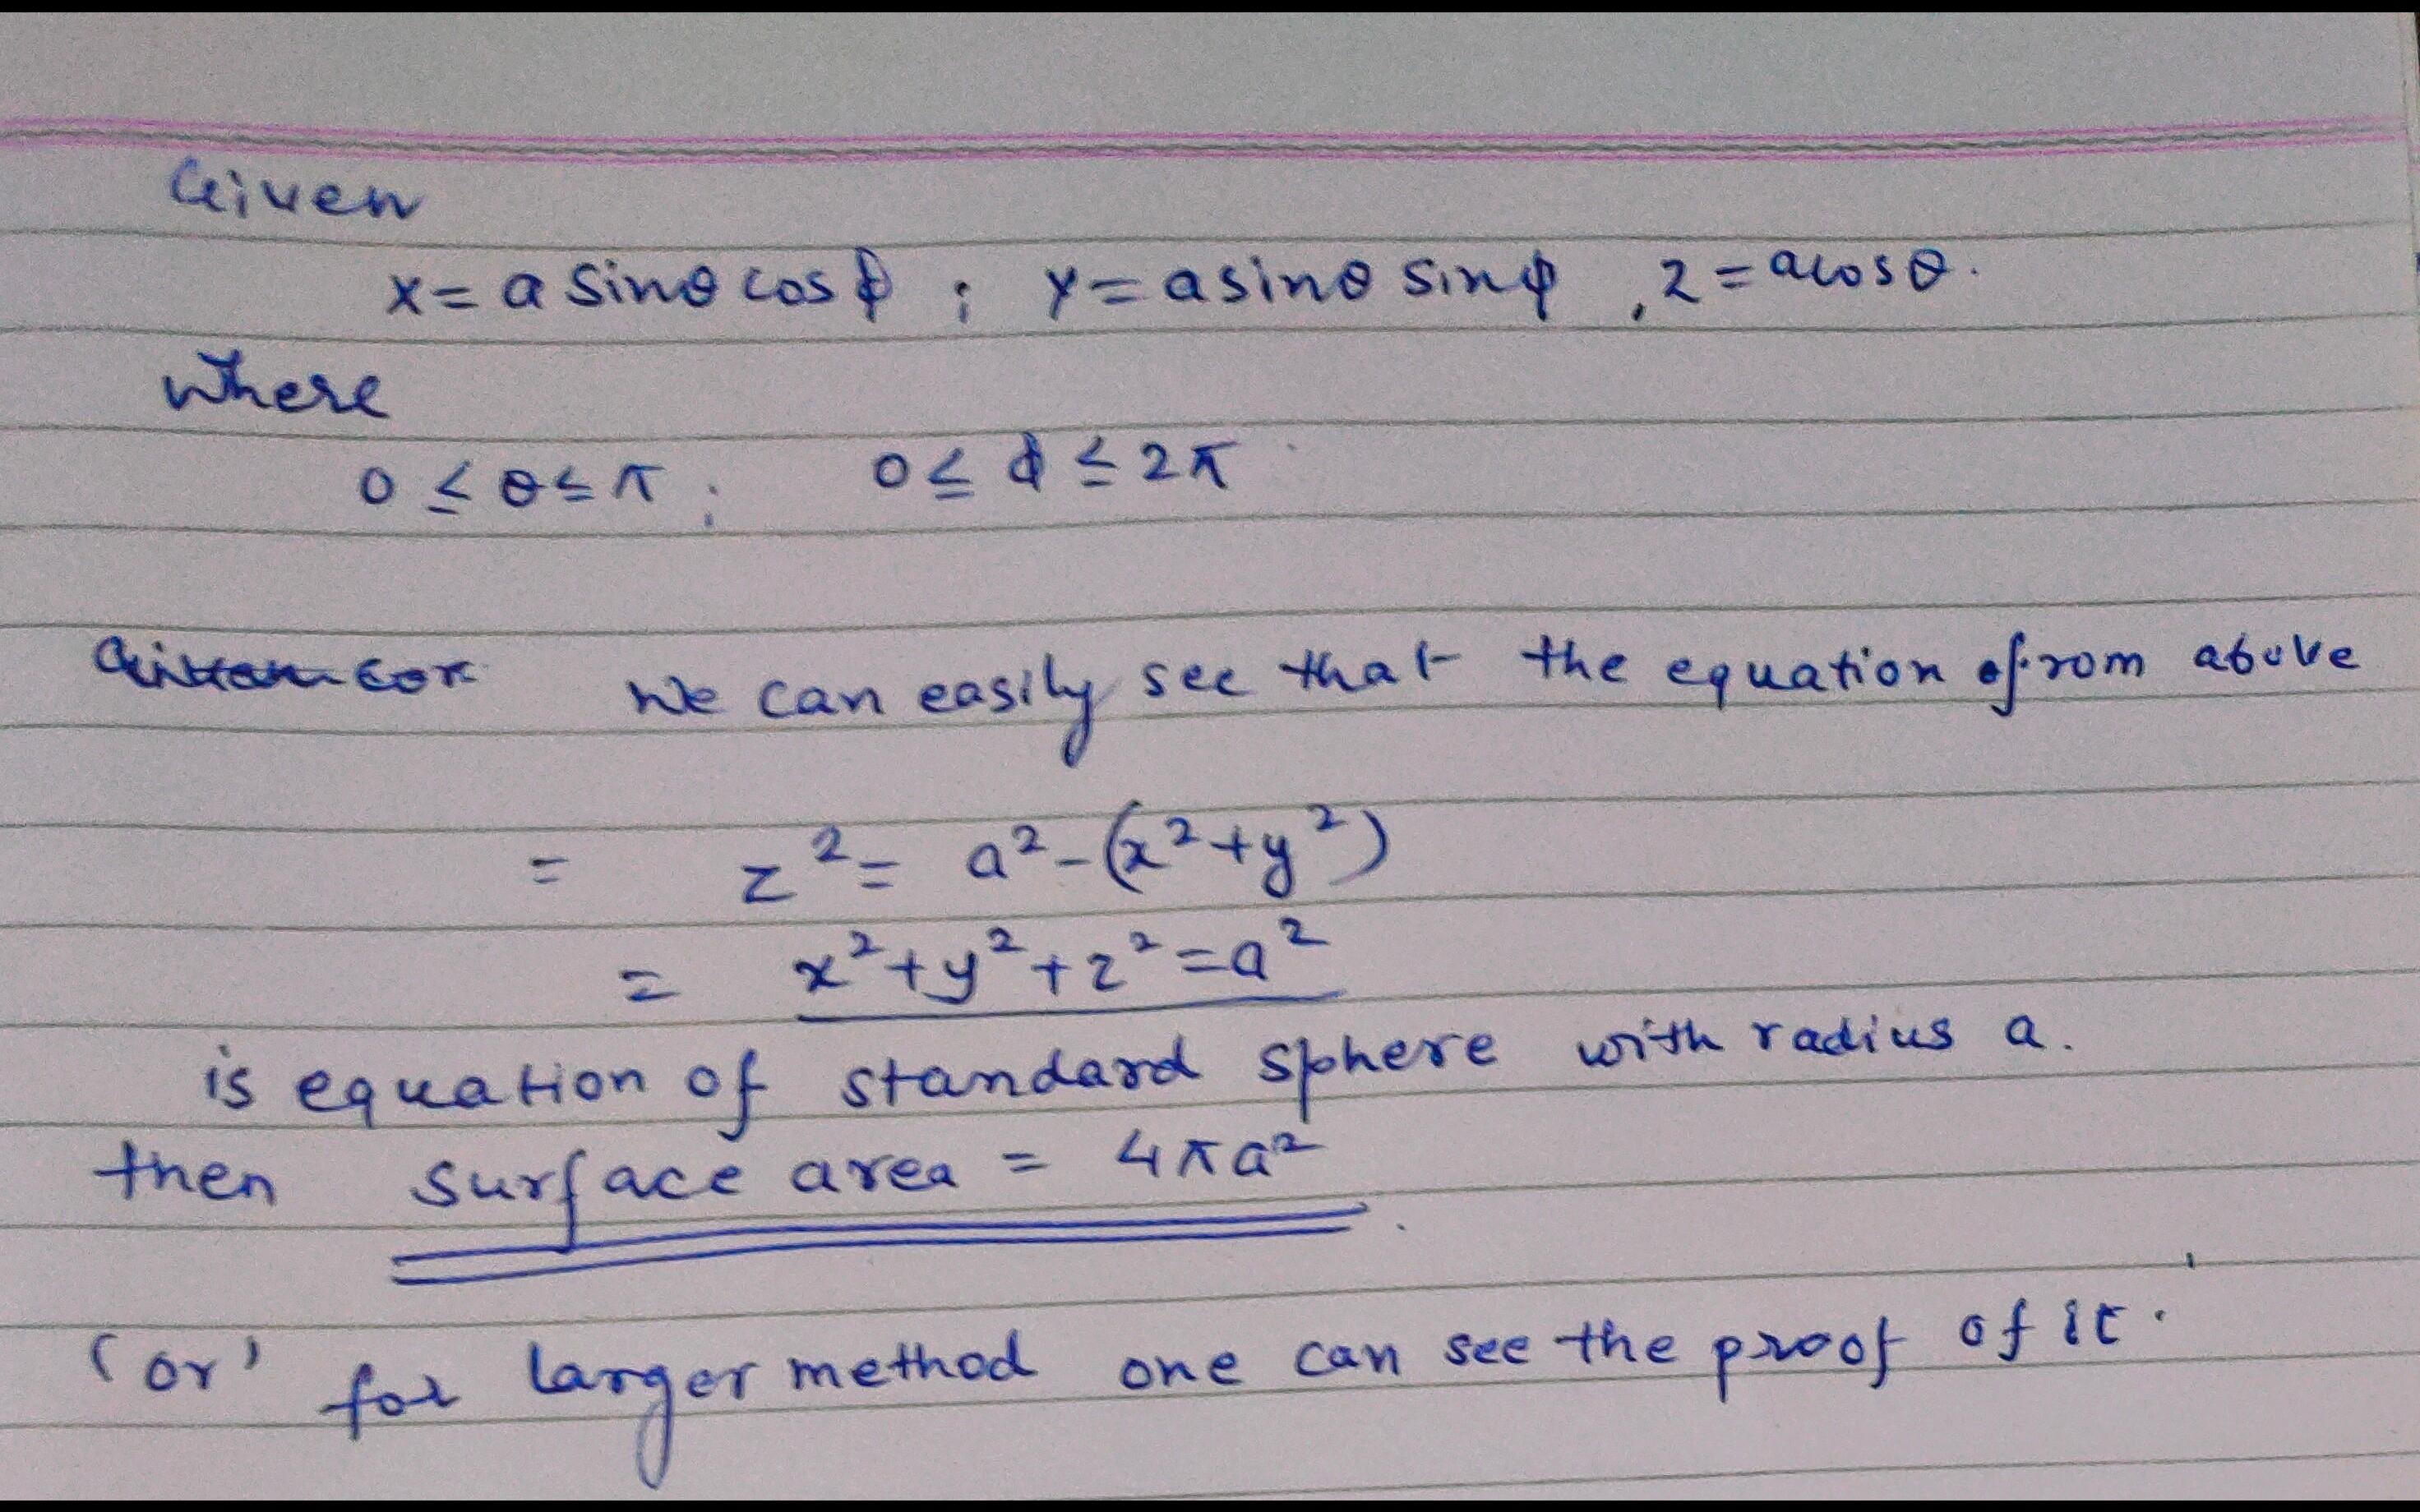 Given
x = a sinθ cosϕ ; y = a sinθ sinϕ , z = a cosθ.
where
0 ≤ θ ≤ π ; 0 ≤ ϕ ≤ 2π
we can easily see that the equation from above
= z² = a² - (x² + y²)
= x² + y² + z² = a²
is equation of standard sphere with radius a.
then surface area = 4πa²
'or' for larger method one can see the proof of it.